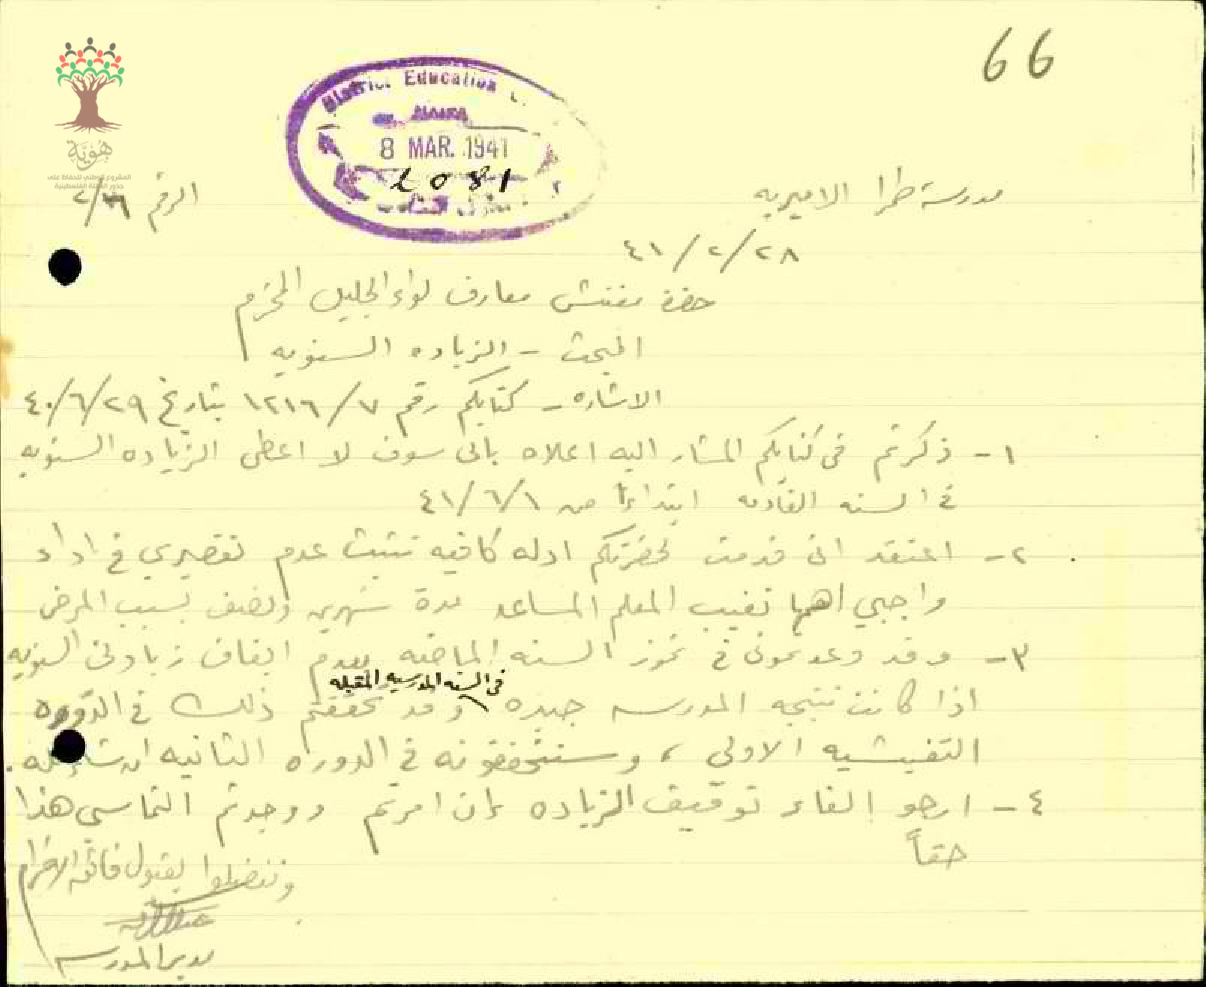 66
هوية
المشروع الوطني للحفاظ على
جذور العائلة الفلسطينية
District Education
8 MAR. 1941
2081
مدرسة طيرا الاميريه
الرقم
٤١/٢/٢٨
حضرة مفتش معارف لواء الجليل المحترم
المبحث - الزياده السنويه
الاشاره - كتابكم رقم ١٢١٦/٧ بتاريخ ٤٠/٦/٢٩
١- ذكرتم في كتابكم المشار اليه اعلاه باني سوف لا اعطى الزياده السنويه
في السنه القادمه ابتداءً من ٤١/٦/١
٢- اعتقد اني قدمت لحضرتكم ادله كافيه تثبت عدم تقصيري في اداء
واجبي اهمها تغيب المعلم المساعد مدة شهرين ونصف بسبب المرض
٣- وقد وعدتموني في تموز السنه الماضيه بعدم ايقاف زيادتي السنويه
في السنه المدرسيه المقبله
اذا كانت نتيجه المدرسه جيده وقد تحققتم ذلك في الدوره
التفتيشيه الاولى ، وستتحققونه في الدوره الثانيه ان شاء الله.
٤- ارجو الغاء توقيف الزياده ان امرتم ووجدتم التماسي هذا
حقاً
وتفضلوا بقبول فائق الاحترام
مدير المدرسه